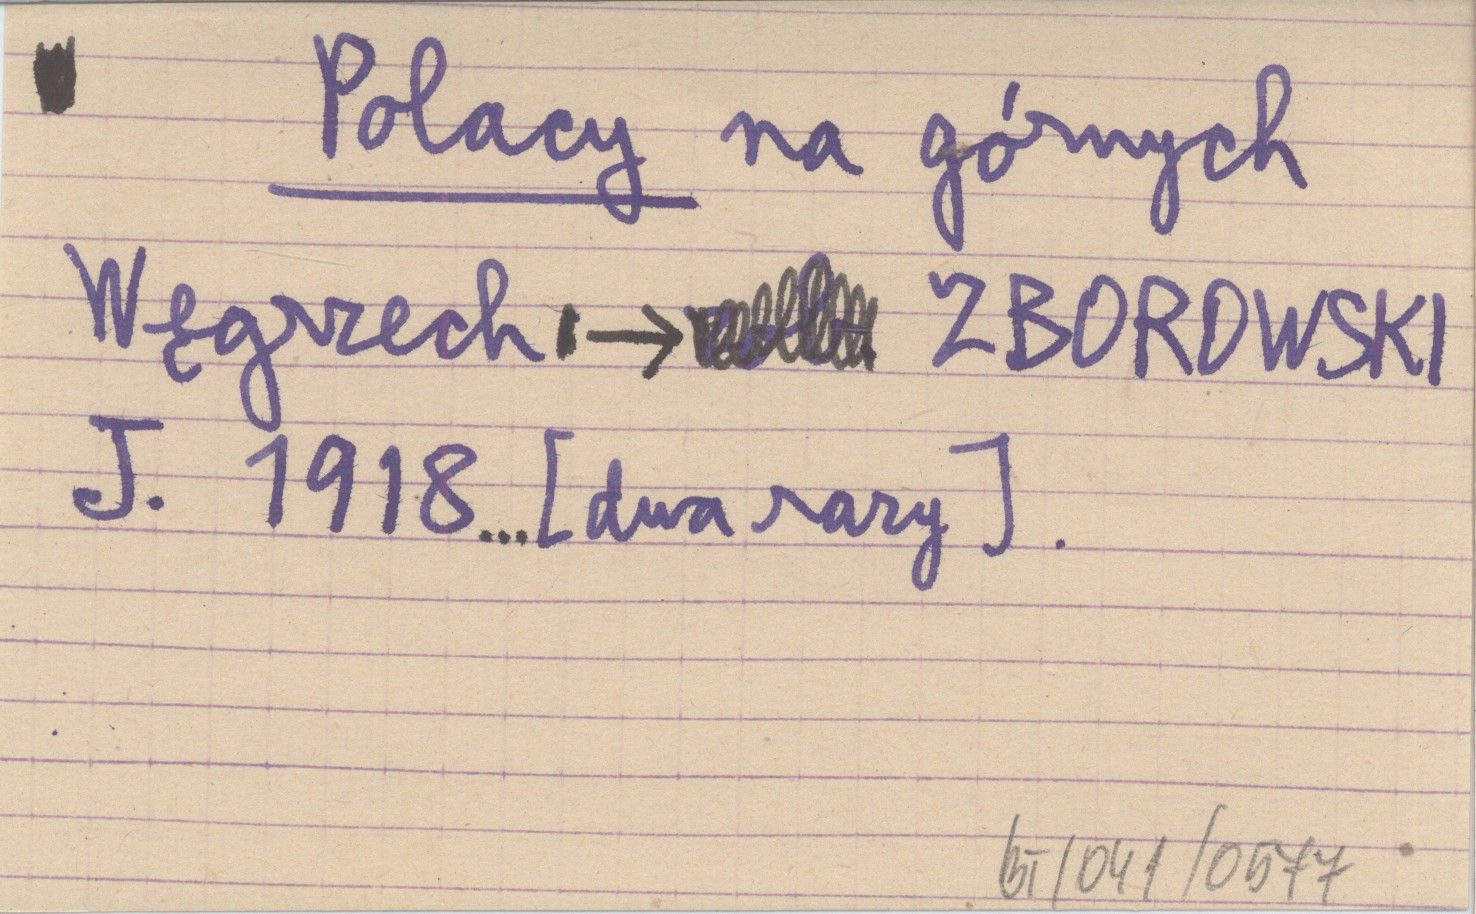 Polacy na górnych
Węgrzech → ZBOROWSKI
J. 1918...[dwa razy].
/041/0577